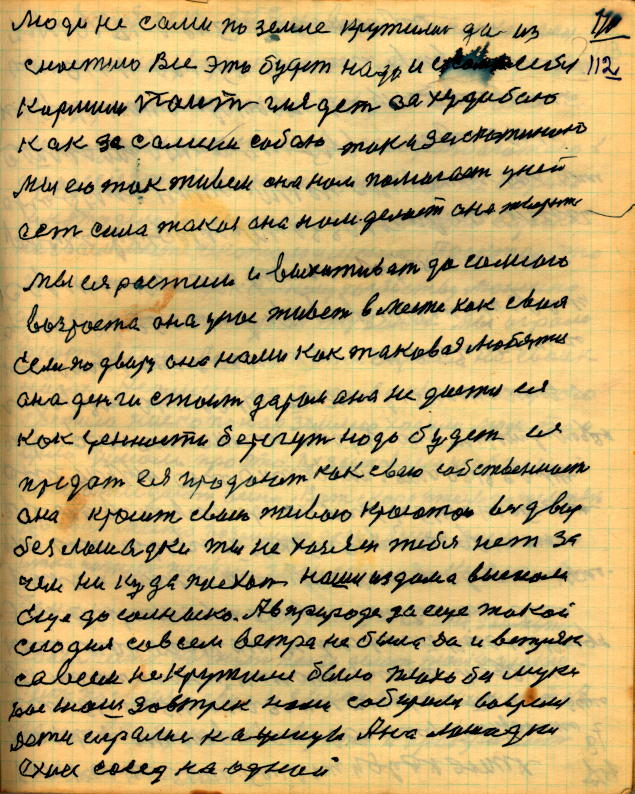 люди не сами по земле крутили да из 111
снастило Все это будет надо и себя 112
кормим поит глядет за худобою
как за самим собаю так и за скотиною
мы ею так живем она нам помогает у ней
аст сила такая она нам делает она творит
мы ея растим и выхаживат до самого
возроста она у нас живет вместе как своя
семя по двару она нами как таковая любятца
она денги стоит даром она не даетца ея
как ценность берегут надо будет ея
продат ея продают как сваю собственност
она красит сваю живою красотою ви двар
без лошадки ты не хазяин тебя нет за
чем ни куда поехат наши из дома выехали
еще до солнышко. А в природе да еще такой
сегодня савсем ветра не была да и ветряк
савсем не крутили было плохо бы муки
наш завтрек нам собирали
дети играли на улицы Ана лошадки
ехал сосед на одной